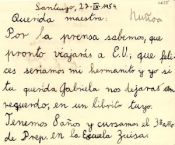 Santiago, 27-IV-1954
Querida maestra:
Por la prensa sabemos, que
pronto viajarás a E.U; que feli-
ces seríamos mi hermanito y yo si
tu querida Gabriela nos dejaras un
recuerdo, en un librito tuyo.
Tenemos 8 años y cursamos el 3er año
de Prep. en la Escuela Suiza.